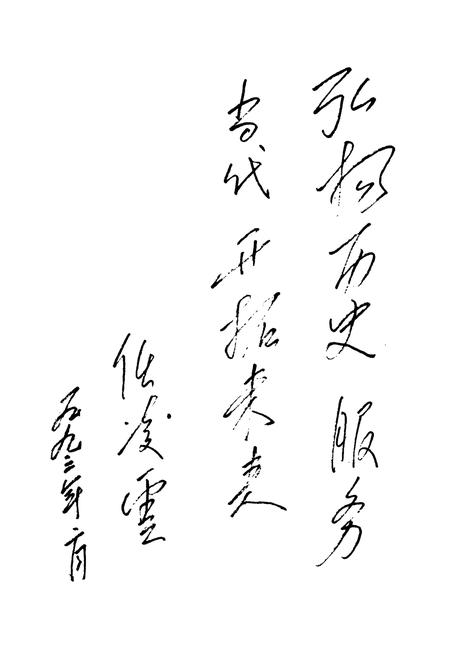 弘扬历史 服务
当代 开拓未来
凌雲
一九九三年二月